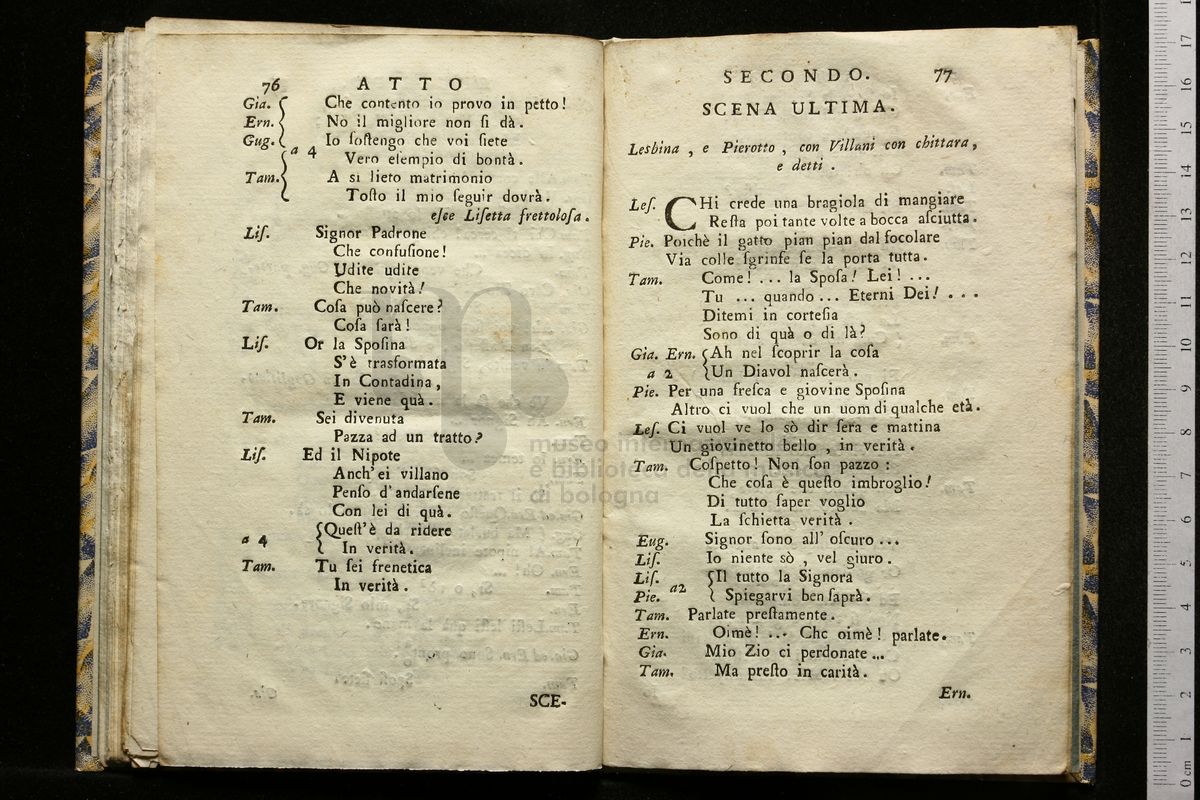 76 ATTO
Gia. Che contento io provo in petto!
Ern. No il migliore non ſi dà.
Gug. Io ſoſtengo che voi ſiete
a 4 Vero eſempio di bontà.
Tam. A sì lieto matrimonio
Toſto il mio ſeguir dovrà.
eſce Liſetta frettoloſa.
Liſ. Signor Padrone
Che confuſione!
Udite udite
Che novità!
Tam. Coſa può naſcere?
Coſa ſarà!
Liſ. Or la Spoſina
S'è trasformata
In Contadina,
E viene quà.
Tam. Sei divenuta
Pazza ad un tratto?
Liſ. Ed il Nipote
Anch'ei villano
Penſo d'andarſene
Con lei di quà.
a 4 Queſt'è da ridere
In verità.
Tam. Tu ſei frenetica
In verità.
SCE-
SECONDO. 77
SCENA ULTIMA.
Lesbina, e Pierotto, con Villani con chittara,
e detti.
Leſ. CHi crede una bragiola di mangiare
Reſta poi tante volte a bocca aſciutta.
Pie. Poichè il gatto pian pian dal focolare
Via colle ſgrinfe ſe la porta tutta.
Tam. Come! ... la Spoſa! Lei! ...
Tu ... quando ... Eterni Dei! ...
Ditemi in corteſia
Sono di quà o di là?
Gia. Ern. Ah nel ſcoprir la coſa
a 2 Un Diavol naſcerà.
Pie. Per una freſca e giovine Spoſina
Altro ci vuol che un uom di qualche età.
Leſ. Ci vuol ve lo sò dir ſera e mattina
Un giovinetto bello, in verità.
Tam. Coſpetto! Non ſon pazzo:
Che coſa è queſto imbroglio!
Di tutto ſaper voglio
La ſchietta verità.
Eug. Signor ſono all' oſcuro ...
Liſ. Io niente sò, vel giuro.
Liſ. Il tutto la Signora
Pie. a2 Spiegarvi ben ſaprà.
Tam. Parlate preſtamente.
Ern. Oimè! ... Che oimè! parlate.
Gia. Mio Zio ci perdonate ...
Tam. Ma preſto in carità.
Ern.
museo
e biblioteca
di bologna
0 cm 1 2 3 4 5 6 7 8 9 10 11 12 13 14 15 16 17